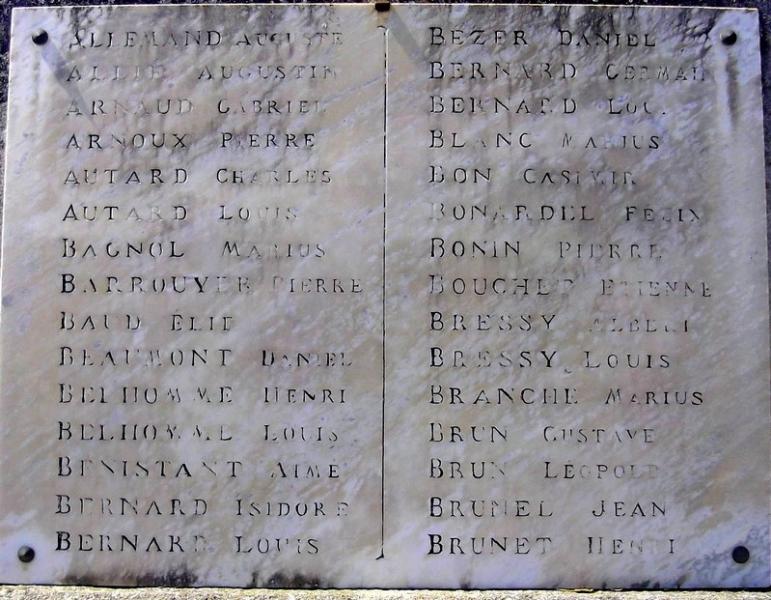 ALLEMAND AUGUSTE
ALLIE AUGUSTIN
ARNAUD GABRIEL
ARNOUX PIERRE
AUTARD CHARLES
AUTARD LOUIS
BAGNOL MARIUS
BARROUYER PIERRE
BAUD ELIE
BEAUMONT DANIEL
BELHOMME HENRI
BELHOMME LOUIS
BENISTANT AIMÉ
BERNARD ISIDORE
BERNARD LOUIS
BEZER DANIEL
BERNARD GERMAIN
BERNARD
BLANC MARIUS
BON CASIMIR
BONARDEL FELIX
BONIN PIERRE
BOUCHET ETIENNE
BRESSY ALBERT
BRESSY LOUIS
BRANCHE MARIUS
BRUN GUSTAVE
BRUN LÉOPOLD
BRUNEL JEAN
BRUNET HENRI